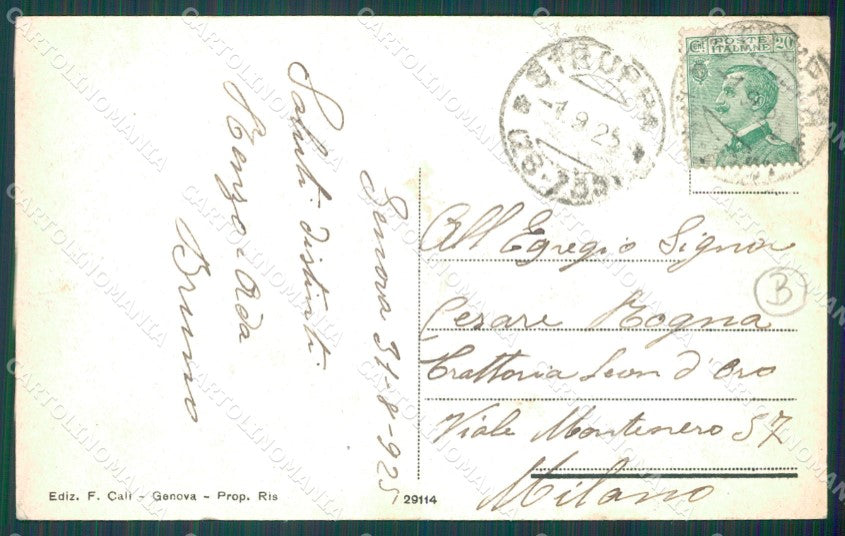 Genova 31-8-925
Saluti distinti
Renzo-Ada
Bruno
STRUPPA
1.9.25
POSTE
ITALIANE
Cmi 20
All Egregio Signor
Cesare Rogna
Trattoria Leon d'Oro
Viale Montenero 57
Milano
B
Ediz. F. Cali - Genova - Prop. Ris
29114
CARTOLINOMANIA